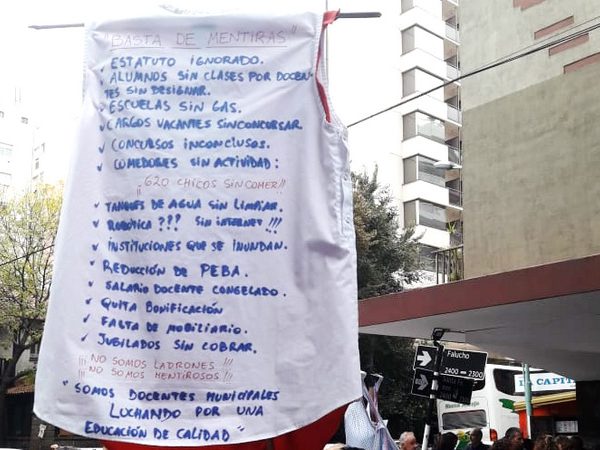 "BASTA DE MENTIRAS"
ESTATUTO IGNORADO.
✓ ALUMNOS SIN CLASES POR DOCEN-
TES SIN DESIGNAR.
✓ ESCUELAS SIN GAS.
✓ CARGOS VACANTES SIN CONCURSAR
✓ CONCURSOS INCONCLUSOS.
✓ COMEDORES SIN ACTIVIDAD:
¡¡620 CHICOS SIN COMER!!
✓ TANQUES DE AGUA SIN LIMPIAR.
✓ ROBÓTICA ??? SIN INTERNET !!!
✓ INSTITUCIONES QUE SE INUNDAN.
✓ REDUCCIÓN DE PEBA.
✓ SALARIO DOCENTE CONGELADO.
✓ QUITA BONIFICACIÓN
✓ FALTA DE MOBILIARIO.
✓ JUBILADOS SIN COBRAR.
¡¡¡ NO SOMOS LADRONES !!!
¡¡¡ NO SOMOS MENTIROSOS !!!
"SOMOS DOCENTES MUNICIPALES
LUCHANDO POR UNA
EDUCACIÓN DE CALIDAD"
Falucho
2400 2300
LA CAPITAL